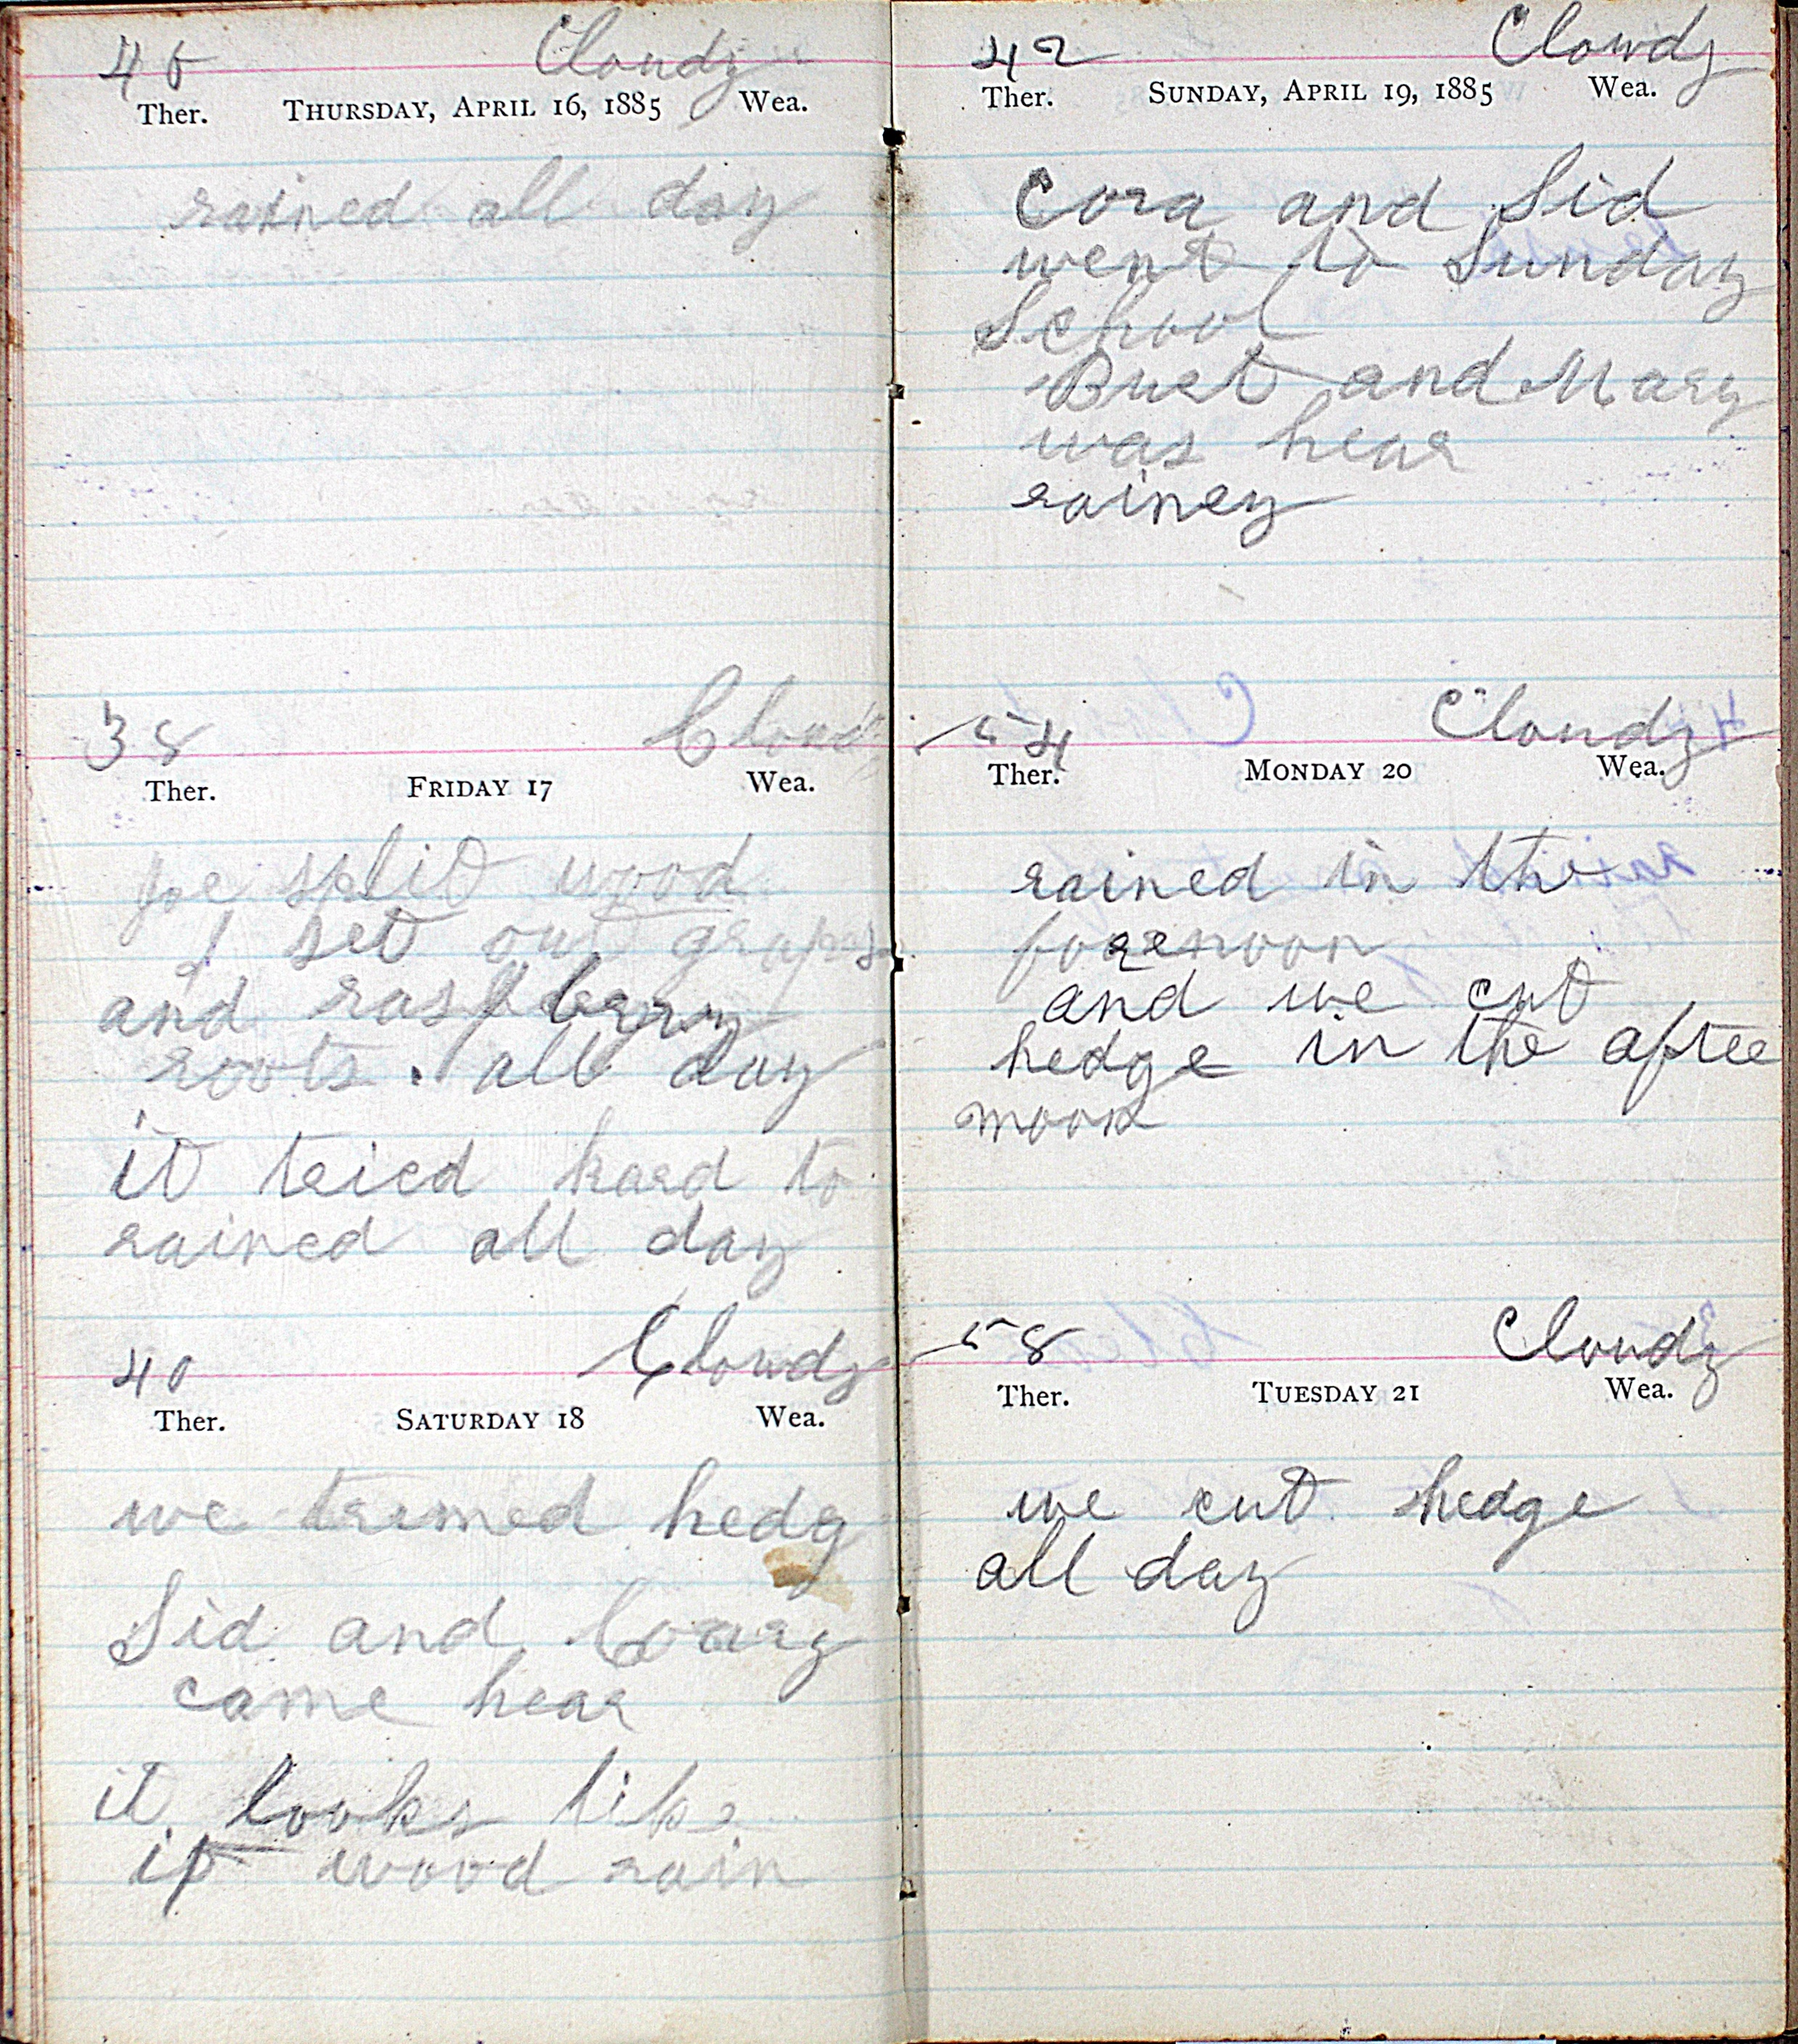 46 Cloudy
Ther. THURSDAY, APRIL 16, 1885 Wea.
rained all day
38 Cloud
Ther. FRIDAY 17 Wea.
Joe split wood
I set out grapes
and raspberry
roots. all day
it tried hard to
rained all day
40 Clowdy
Ther. SATURDAY 18 Wea.
we tremed hedg
Sid and Coary
came hear
it looks like
if wood rain
42 Clowdy
Ther. SUNDAY, APRIL 19, 1885 Wea.
Cora and Sid
went to Sunday
School
Burt and Mary
was hear
rainey
54 Cloudy
Ther. MONDAY 20 Wea.
rained in the
forenoon
and we cut
hedge in the after
moon
58 Cloudy
Ther. TUESDAY 21 Wea.
we cut hedge
all day